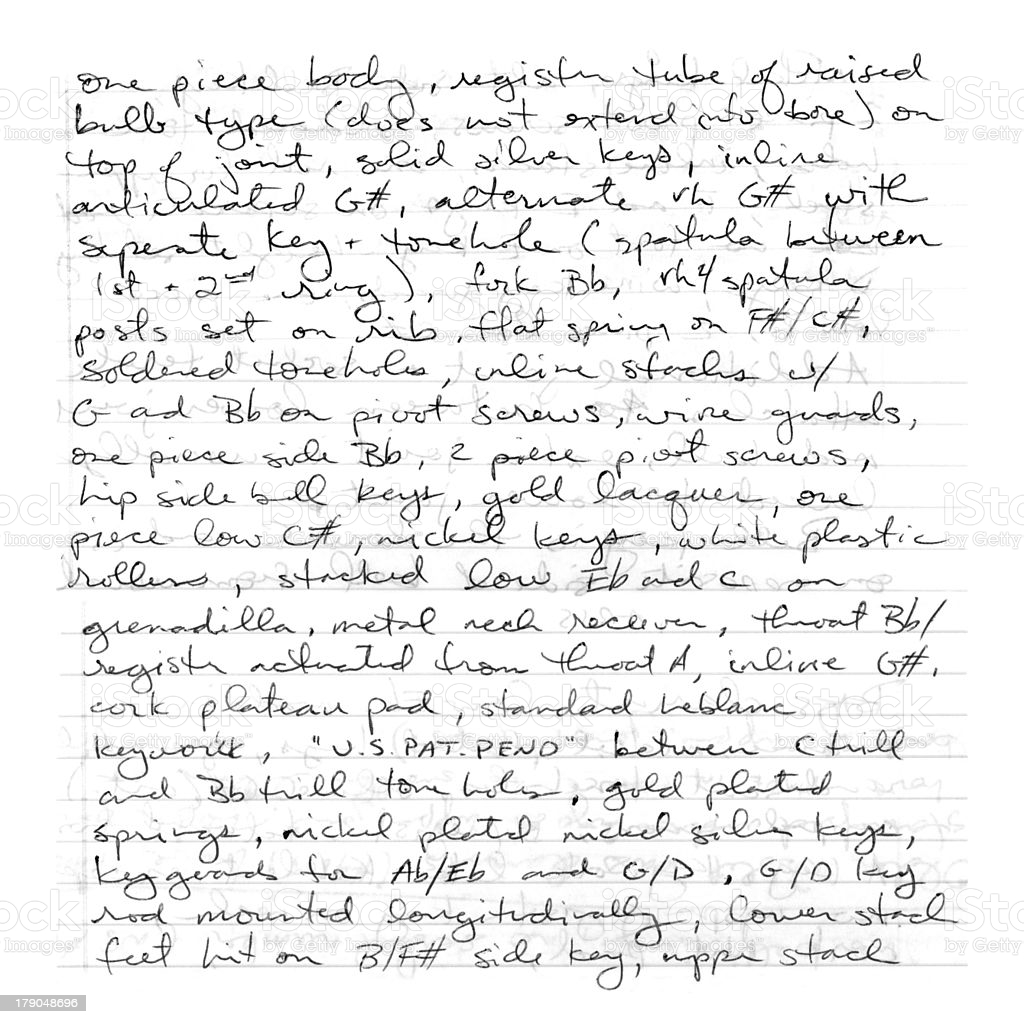 one piece body, register tube of raised
bulb type (does not extend into bore) on
top of joint, solid silver keys, inline
articulated G#, alternate rh G# with
seperate key + tonehole (spatula between
1st + 2nd ring), fork Bb, rh4 spatula
posts set on rib, flat spring on F#/C#,
soldered toneholes, inline stacks w/
G ad Bb on pivot screws, wire guards,
one piece side Bb, 2 piece pivot screws,
hip side bell keys, gold lacquer, one
piece low C#, nickel keys, white plastic
rollers, stacked low Eb ad C on
grenadilla, metal neck receiver, throat Bb/
register actuated from throat A, inline G#,
cork plateau pad, standard Leblanc
keywork, "U.S. PAT. PEND" between C trill
and Bb trill tone holes, gold plated
springs, nickel plated nickel silver keys,
keyguards for Ab/Eb and G/D, G/D key
rod mounted longitudinally, lower stack
feet hit on B/F# side key, upper stack
iStock
by Getty Images
179048696